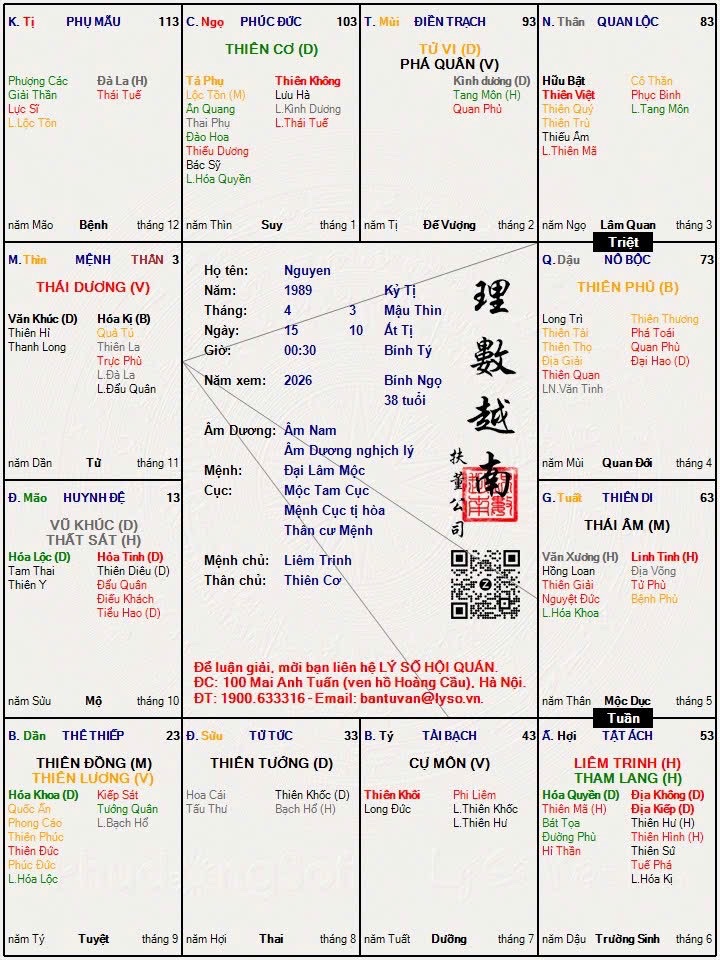 K. Tị PHỤ MẪU 113
Phượng Các
Giải Thần
Lực Sĩ
L.Lộc Tồn
Đà La (H)
Thái Tuế
năm Mão Bệnh tháng 12
C. Ngọ PHÚC ĐỨC 103
THIÊN CƠ (D)
Tả Phụ
Lộc Tồn (M)
Ân Quang
Thai Phụ
Đào Hoa
Thiếu Dương
Bác Sỹ
L.Hóa Quyền
Thiên Không
Lưu Hà
L.Kình Dương
L.Thái Tuế
năm Thìn Suy tháng 1
T. Mùi ĐIỀN TRẠCH 93
TỬ VI (D)
PHÁ QUÂN (V)
Kình dương (D)
Tang Môn (H)
Quan Phủ
năm Tị Đế Vượng tháng 2
N. Thân QUAN LỘC 83
Hữu Bật
Thiên Việt
Thiên Quý
Thiên Trù
Thiếu Âm
L.Thiên Mã
Cô Thần
Phục Binh
L.Tang Môn
năm Ngọ Lâm Quan tháng 3
Triệt
M. Thìn MỆNH THÂN 3
THÁI DƯƠNG (V)
Văn Khúc (D)
Thiên Hỉ
Thanh Long
Hóa Kị (B)
Quả Tú
Thiên La
Trực Phù
L.Đà La
L.Đẩu Quân
năm Dần Tử tháng 11
Họ tên: Nguyen
Năm: 1989 Kỷ Tị
Tháng: 4 3 Mậu Thìn
Ngày: 15 10 Ất Tị
Giờ: 00:30 Bính Tý
Năm xem: 2026 Bính Ngọ
38 tuổi
Âm Dương: Âm Nam
Âm Dương nghịch lý
Mệnh: Đại Lâm Mộc
Cục: Mộc Tam Cục
Mệnh Cục tị hòa
Thân cư Mệnh
Mệnh chủ: Liêm Trinh
Thân chủ: Thiên Cơ
理數越南
扶董公司
Để luận giải, mời bạn liên hệ LÝ SỐ HỘI QUÁN.
ĐC: 100 Mai Anh Tuấn (ven hồ Hoàng Cầu), Hà Nội.
ĐT: 1900.633316 - Email: bantuvan@lyso.vn.
Q. Dậu NÔ BỘC 73
THIÊN PHỦ (B)
Long Trì
Thiên Tài
Thiên Thọ
Địa Giải
Thiên Quan
LN.Văn Tinh
Thiên Thương
Phá Toái
Quan Phù
Đại Hao (D)
năm Mùi Quan Đới tháng 4
Đ. Mão HUYNH ĐỆ 13
VŨ KHÚC (D)
THẤT SÁT (H)
Hóa Lộc (D)
Tam Thai
Thiên Y
Hỏa Tinh (D)
Thiên Diêu (D)
Đẩu Quân
Điếu Khách
Tiểu Hao (D)
năm Sửu Mộ tháng 10
G. Tuất THIÊN DI 63
THÁI ÂM (M)
Văn Xương (H)
Hồng Loan
Thiên Giải
Nguyệt Đức
L.Hóa Khoa
Linh Tinh (H)
Địa Võng
Tử Phù
Bệnh Phù
năm Thân Mộc Dục tháng 5
Tuần
B. Dần THÊ THIẾP 23
THIÊN ĐỒNG (M)
THIÊN LƯƠNG (V)
Hóa Khoa (D)
Quốc Ấn
Phong Cáo
Thiên Phúc
Thiên Đức
Phúc Đức
L.Hóa Lộc
Kiếp Sát
Tướng Quân
L.Bạch Hổ
năm Tý Tuyệt tháng 9
Đ. Sửu TỬ TỨC 33
THIÊN TƯỚNG (D)
Hoa Cái
Tấu Thư
Thiên Khốc (D)
Bạch Hổ (H)
năm Hợi Thai tháng 8
B. Tý TÀI BẠCH 43
CỰ MÔN (V)
Thiên Khôi
Long Đức
Phi Liêm
L.Thiên Khốc
L.Thiên Hư
năm Tuất Dưỡng tháng 7
Ấ. Hợi TẬT ÁCH 53
LIÊM TRINH (H)
THAM LANG (H)
Hóa Quyền (D)
Thiên Mã (H)
Bát Tọa
Đường Phù
Hỉ Thần
Địa Không (D)
Địa Kiếp (D)
Thiên Hư (H)
Thiên Hình (H)
Thiên Sứ
Tuế Phá
L.Hóa Kị
năm Dậu Trường Sinh tháng 6